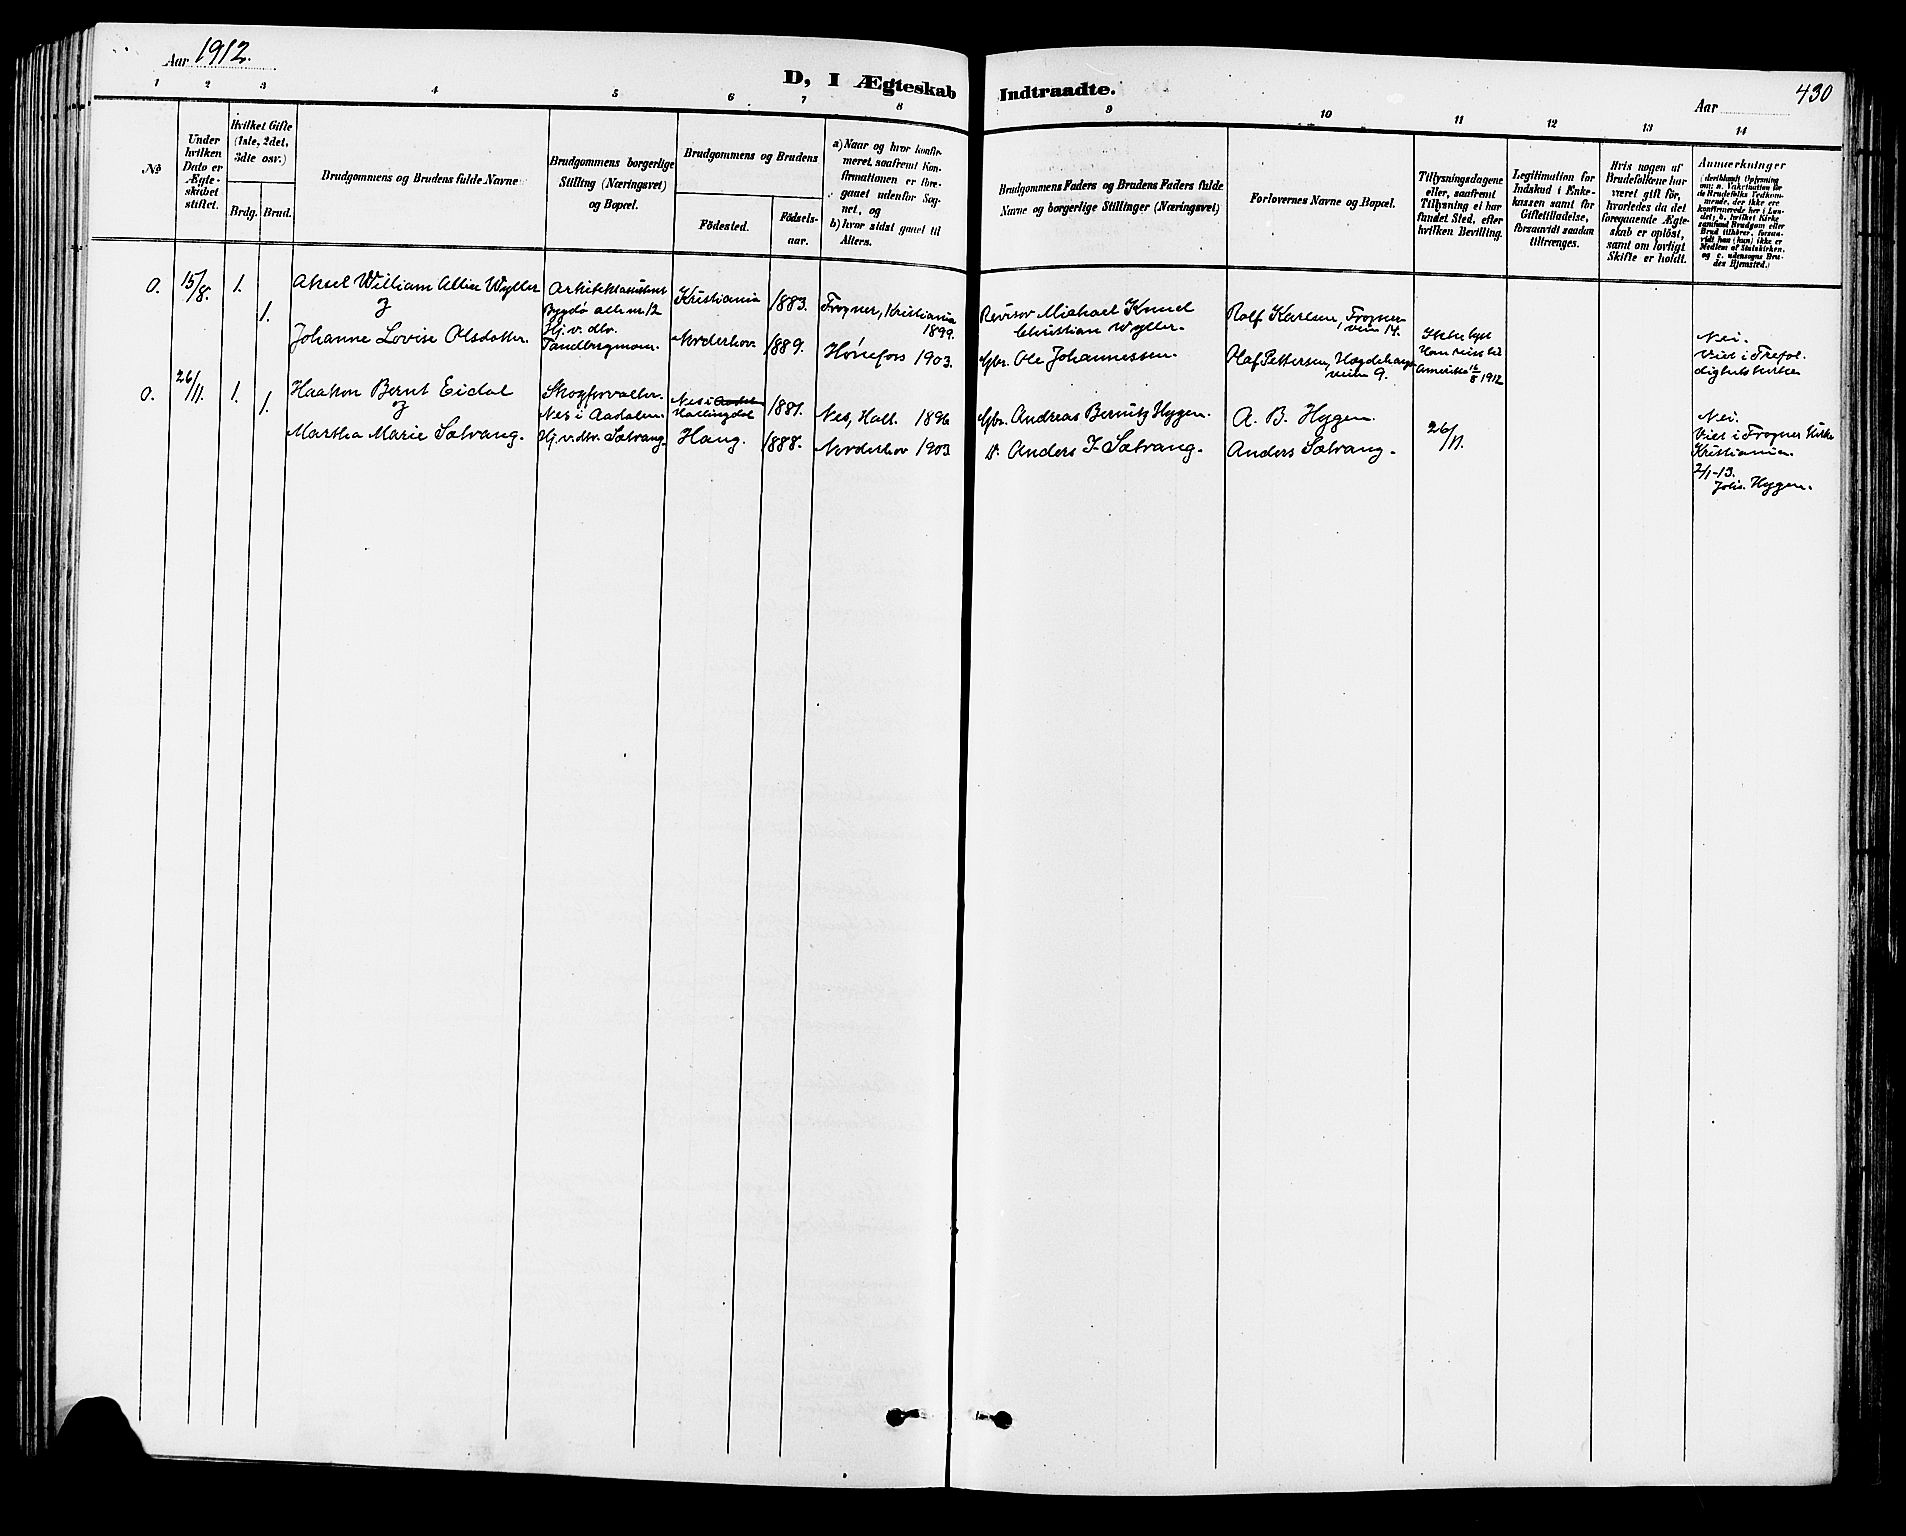 Aar 1912.
D, I Ægteskab Indtraadte.
Aar
430
1 2 3 4 5 6 7 8 9 10 11 12 13 14
No
Under hvilken Dato er Ægteskabet stiftet.
Hvilket Gifte (1ste, 2det, 3die osv.)
Brdg. Brud.
Brudgommens og Brudens fulde Navne
Brudgommens borgerlige Stilling (Næringsvei) og Bopæl.
Brudgommens og Brudens
Födested.
Födsels-aar.
a) Naar og hvor konfirmeret, saafremt Konfirmationen er foregaaet udenfor Sognet, og
b) hvor sidst gaaet til Alters.
Brudgommens Faders og Brudens Faders fulde Navne og borgerlige Stillinger (Næringsvei)
Forlovernes Navne og Bopæl.
Tillysningsdagene eller, saafremt Tillysning ei har fundet Sted, efter hvilken Bevilling.
Legitimation for Indskud i Enkekassen samt for Giftetilladelse, forsaavidt saadan tiltrænges.
Hvis nogen af Brudefolkene har været gift för, hvorledes da det foregaaende Ægteskab er oplöst, samt om lovligt Skifte er holdt.
Anmærkninger
(deriblandt Oplysning om: a. Vakcination for de Brudefolks Vedkommende, der ikke ere konfirmerede her i Landet, b. hvilket Kirkesamfund Brudgom eller Brud tilhörer, forsaavidt han (hun) ikke er Medlem af Statskirken, og c. udensogns Brudes Hjemsted.)
0. 15/8. 1.
1.
Aksel William Allia Wyller
&
Johanne Lovise Olsdatter.
Arkitektassistent
Bygdø alle nr. 12
Hj. v. dtv.
Tandbergmoen.
Kristiania 1883.
Norderhov 1889.
Frogner, Kristiania
1899.
Hønefos 1903.
Revisor Michael Knud
Christian Wyller.
Gbr. Ole Johannessen.
Rolf Karlsen, Frogner-
veien 14.
Olaf Pettersen, Hægdehaugs-
veien 9.
Ikke lyst
Han reist til
Amerika 16/8 1912
Nei.
Viet i Trefol-
dighetskirken
0. 26/11. 1.
1.
Haakon Bernt Eidal
&
Martha Marie Sætrang.
Skogforvalter.
Nes i Aadalen.
Hj. v. dtv. Sætrang.
Nes i Aadal
Hallingdal
Haug.
1881.
1888.
Nes, Hall. 1896
Norderhov 1903
Gbr. Andreas Bernitz Hygen.
D. Anders I. Sætrang.
A. B. Hygen.
Anders Sætrang.
26/11.
Nei.
Viet i Frogner Kirke
Kristiania.
2/1-13.
Johs. Hygen.